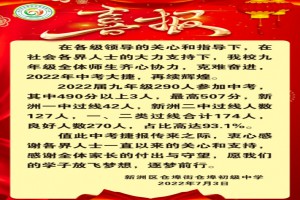 喜报
在各级领导的关心和指导下，在
社会各界人士的大力支持下，我校九
年级全体师生齐心协力，克难奋进，
2022年中考大捷，再续辉煌。
2022届九年级290人参加中考，
其中490分以上3人，最高507分，新
洲一中过线42人，新洲二中过线人数
127人，一、二类过线合计174人，
良好人数270人，占比高达93.1%。
值此中考捷报传来之际，衷心感
谢各界人士一直以来的关心和支持，
感谢全体家长的付出与守望，愿我们
的学子放飞梦想，逐梦前行。
新洲区仓埠街仓埠初级中学
2022年7月3日